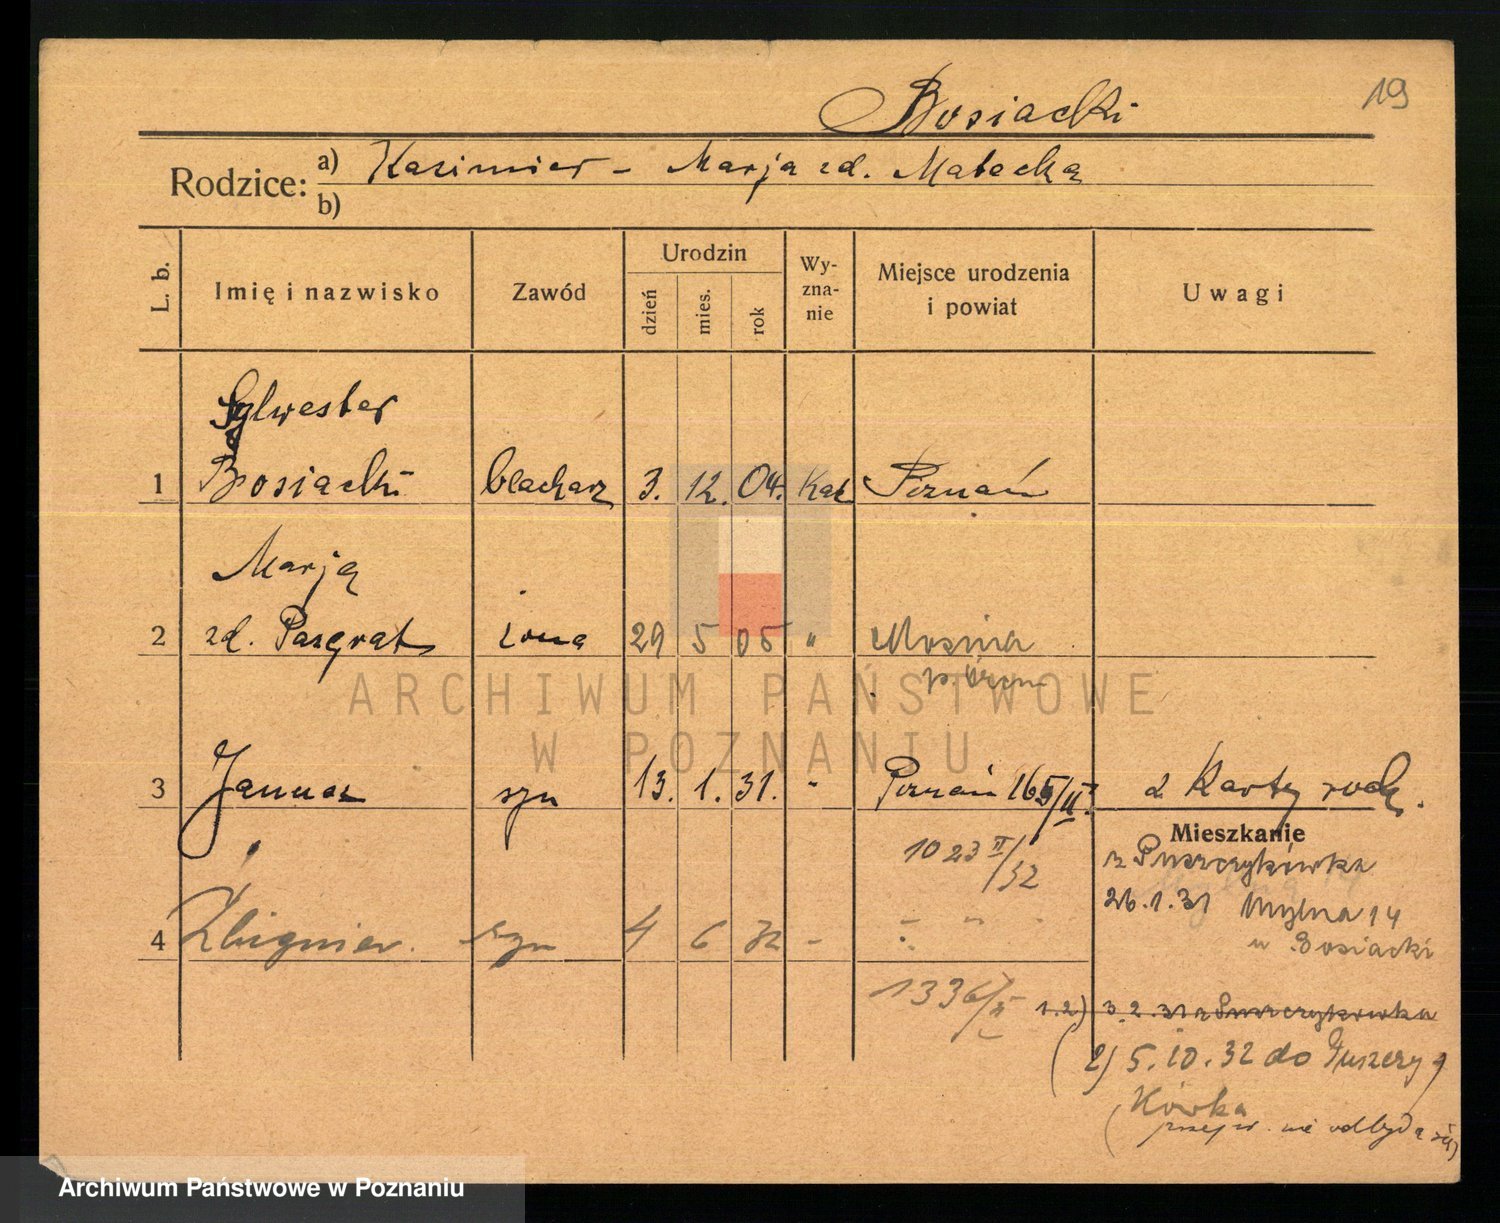 19
Bosiacki
Rodzice: a) Kazimier – Marja zd. Małecka
b)
L. b. Imię i nazwisko Zawód Urodzin dzień mies. rok Wy-zna-nie Miejsce urodzenia i powiat Uwagi
Sylwester
1 Bosiacki blacharz 3. 12. 04. Kat Poznań
Marja
2 zd. żona 29 5 05 " Mosina
p. Śrem
3 Janusz syn 13. 1. 31. " Poznań 165/II z Karty rodz.
Mieszkanie
1023 II/32 z Puszczykówka
26.1.31 Mylna 14
4 Zbigniew. syn 4 6 32 – " "
u Bosiacki
1336/II 1.2) 3.2.31 z Puszczykówka
(2) 5.10.32 do Puszczy
kówka
nie odbyła się)
ARCHIWUM PAŃSTWOWE
W POZNANIU
Archiwum Państwowe w Poznaniu